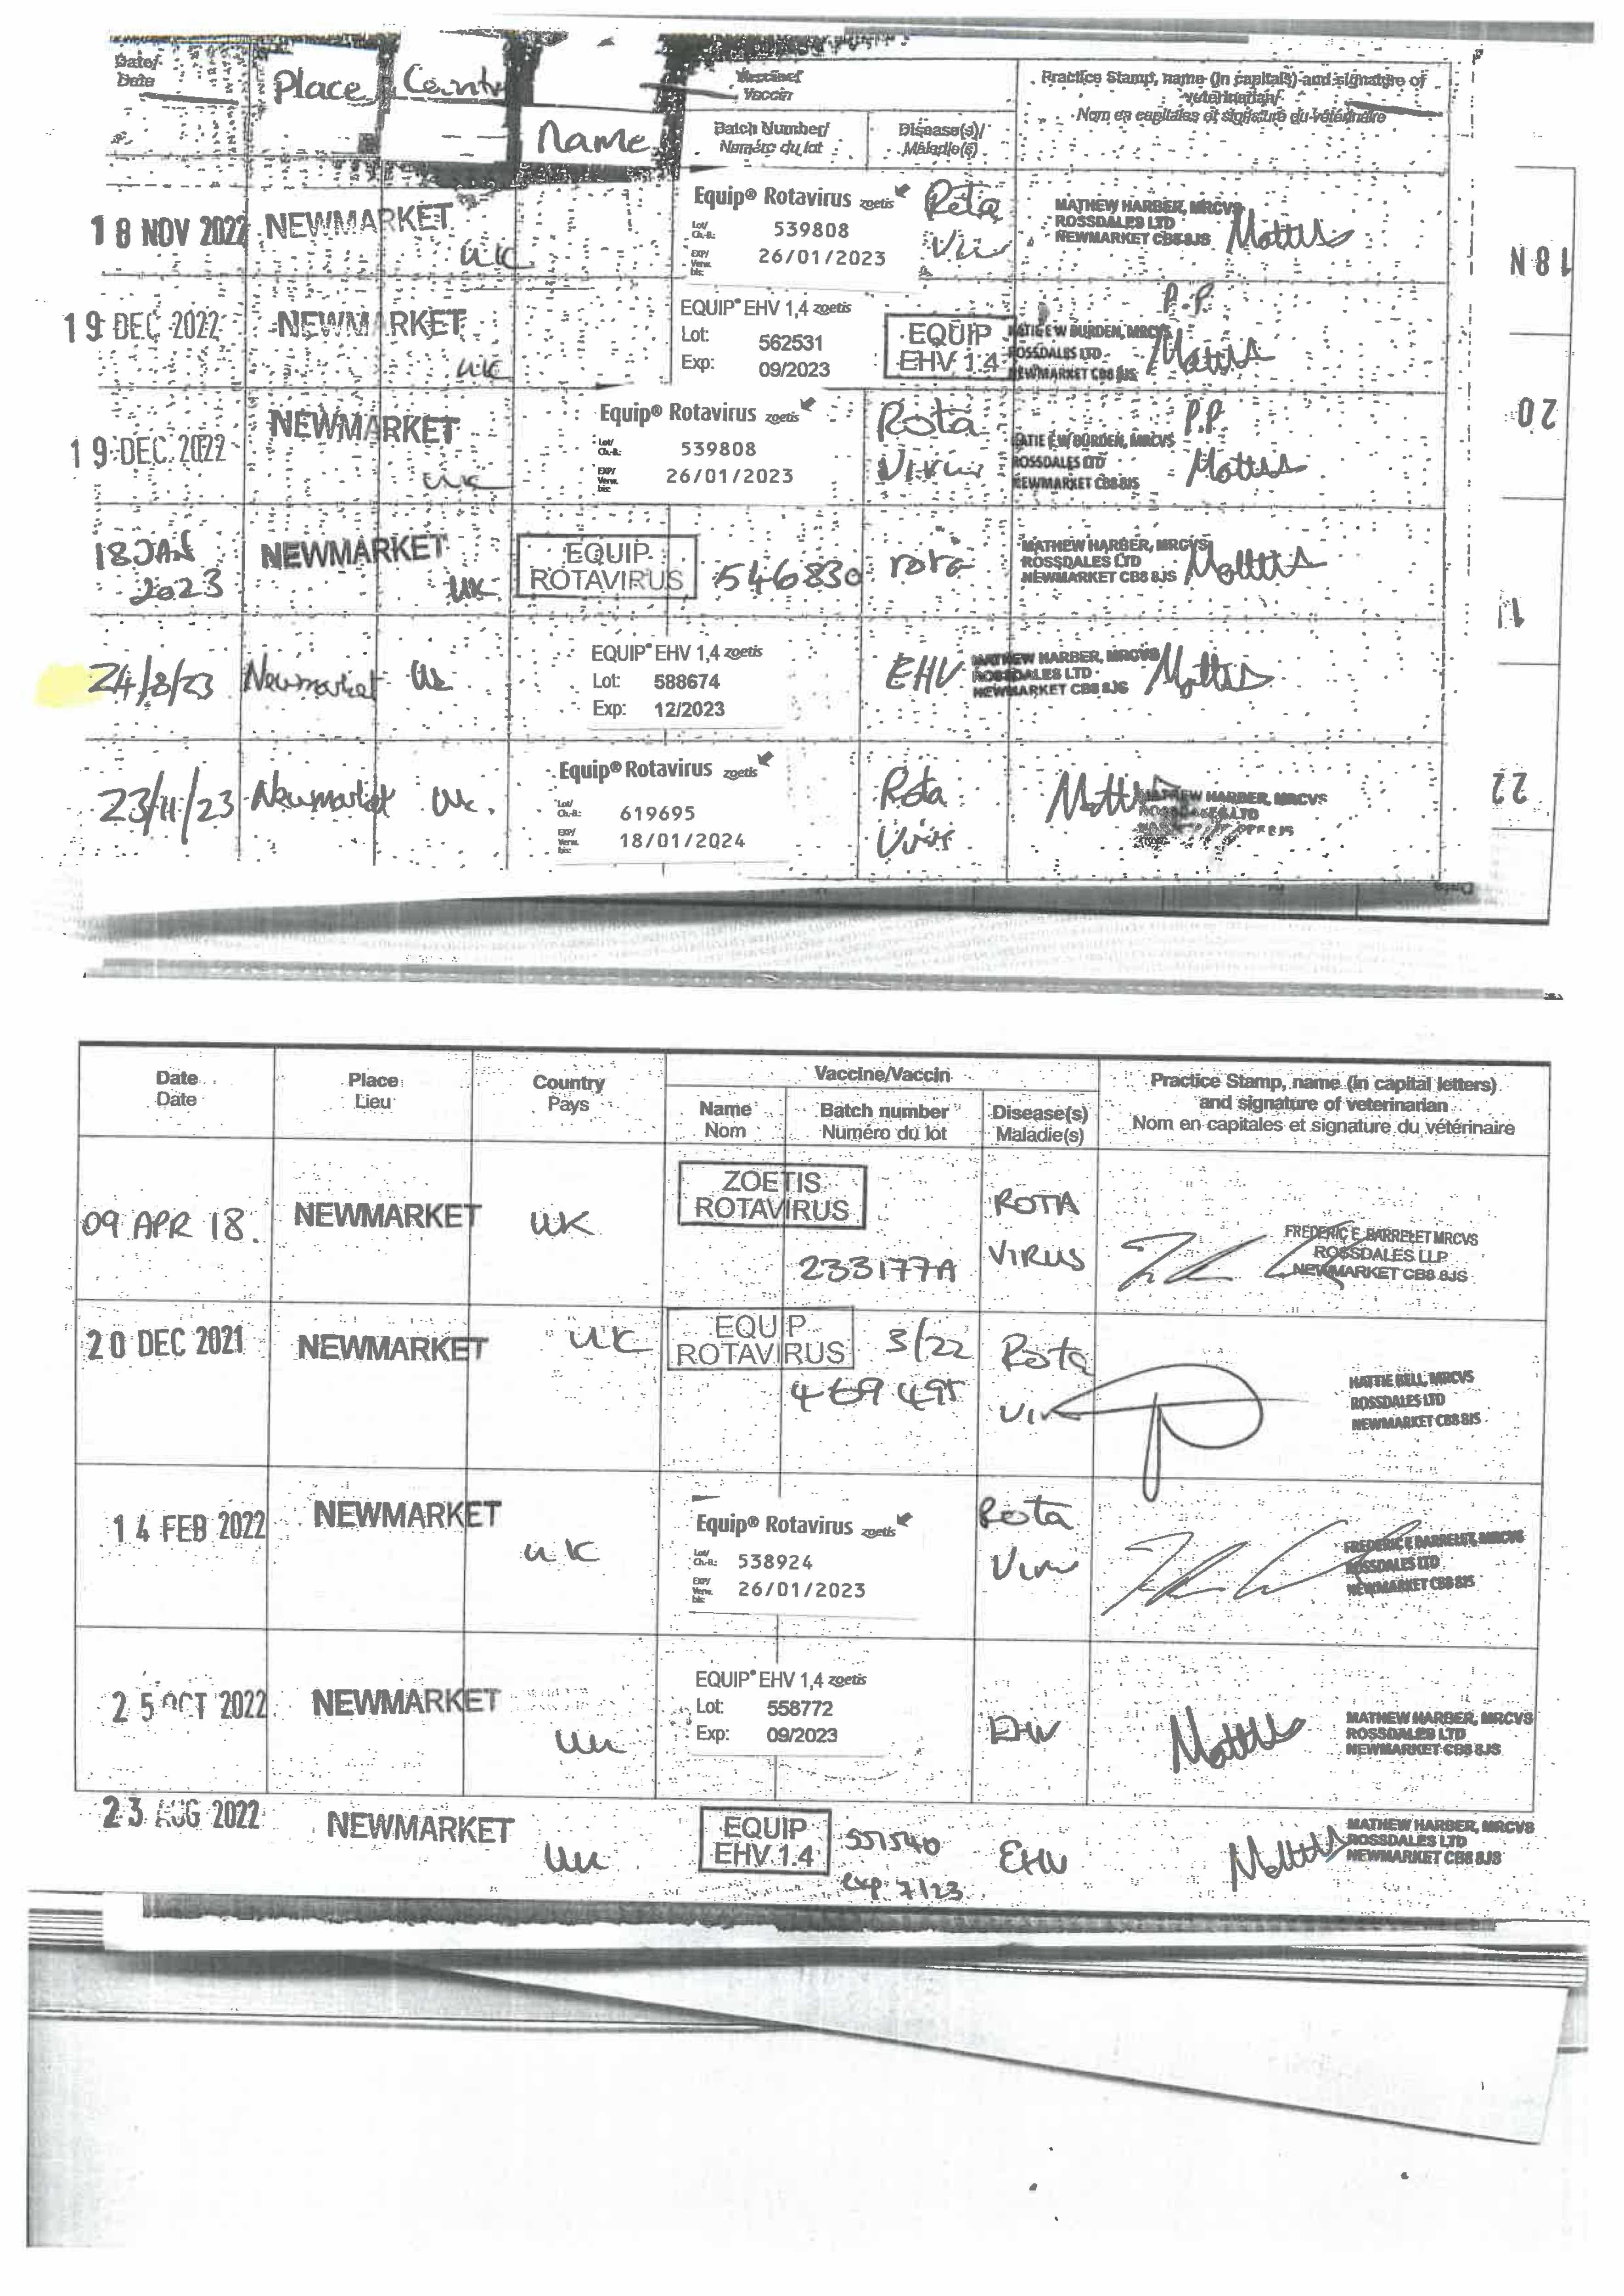 Date/
Date
Place
Country
Name
Vaccine/
Vaccin
Batch Number/
Numéro du lot
Disease(s)/
Maladie(s)
Practice Stamp, name (in capitals) and signature of
veterinarian/
Nom en capitales et signature du vétérinaire
18 NOV 2022
NEWMARKET
UK
Equip® Rotavirus zoetis
Lot/
Ch.-B.: 539808
EXP/
Verw.
bis: 26/01/2023
Rota
MATHEW HARBER, MRCVS
ROSSDALES LTD
NEWMARKET CB8 8JS
18 N
19 DEC 2022
NEWMARKET
UK
EQUIP® EHV 1,4 zoetis
Lot: 562531
Exp: 09/2023
EQUIP
EHV 1.4
P.P.
BURDEN, MRCVS
ROSSDALES LTD
NEWMARKET CB8 8JS
20
19 DEC 2022
NEWMARKET
UK
Equip® Rotavirus zoetis
Lot/
Ch.-B.: 539808
EXP/
Verw.
bis: 26/01/2023
Rota
Virus
P.P.
BURDEN, MRCVS
ROSSDALES LTD
NEWMARKET CB8 8JS
18 JAN
2023
NEWMARKET
UK
EQUIP
ROTAVIRUS
546830
rota
MATHEW HARBER, MRCVS
ROSSDALES LTD
NEWMARKET CB8 8JS
24/8/23
Newmarket
UK
EQUIP® EHV 1,4 zoetis
Lot: 588674
Exp: 12/2023
EHV
MATHEW HARBER, MRCVS
ROSSDALES LTD
NEWMARKET CB8 8JS
23/11/23
Newmarket
UK.
Equip® Rotavirus zoetis
Lot/
Ch.-B.: 619695
EXP/
Verw.
bis: 18/01/2024
Rota
Virus
MATHEW HARBER, MRCVS
ROSSDALES LTD
22
Date
Date
Date
Place
Lieu
Country
Pays
Vaccine/Vaccin
Name
Nom
Batch number
Numéro du lot
Disease(s)
Maladie(s)
Practice Stamp, name (in capital letters)
and signature of veterinarian
Nom en capitales et signature du vétérinaire
09 APR 18.
NEWMARKET
UK
ZOETIS
ROTAVIRUS
233177A
ROTA
VIRUS
FREDERIC E BARRELET MRCVS
ROSSDALES LLP
NEWMARKET CB8 8JS
20 DEC 2021
NEWMARKET
UK
EQUIP
ROTAVIRUS
3/22
469495
Rota
HATTIE BELL, MRCVS
ROSSDALES LTD
NEWMARKET CB8 8JS
14 FEB 2022
NEWMARKET
UK
Equip® Rotavirus zoetis
Lot/
Ch.-B.: 538924
EXP/
Verw.
bis: 26/01/2023
Rota
FREDERIC E BARRELET, MRCVS
ROSSDALES LTD
NEWMARKET CB8 8JS
25 OCT 2022
NEWMARKET
UK
EQUIP® EHV 1,4 zoetis
Lot: 558772
Exp: 09/2023
EHV
MATHEW HARBER, MRCVS
ROSSDALES LTD
NEWMARKET CB8 8JS
23 AUG 2022
NEWMARKET
UK
EQUIP
EHV 1.4
551540
exp 7/23
EHV
MATHEW HARBER, MRCVS
ROSSDALES LTD
NEWMARKET CB8 8JS